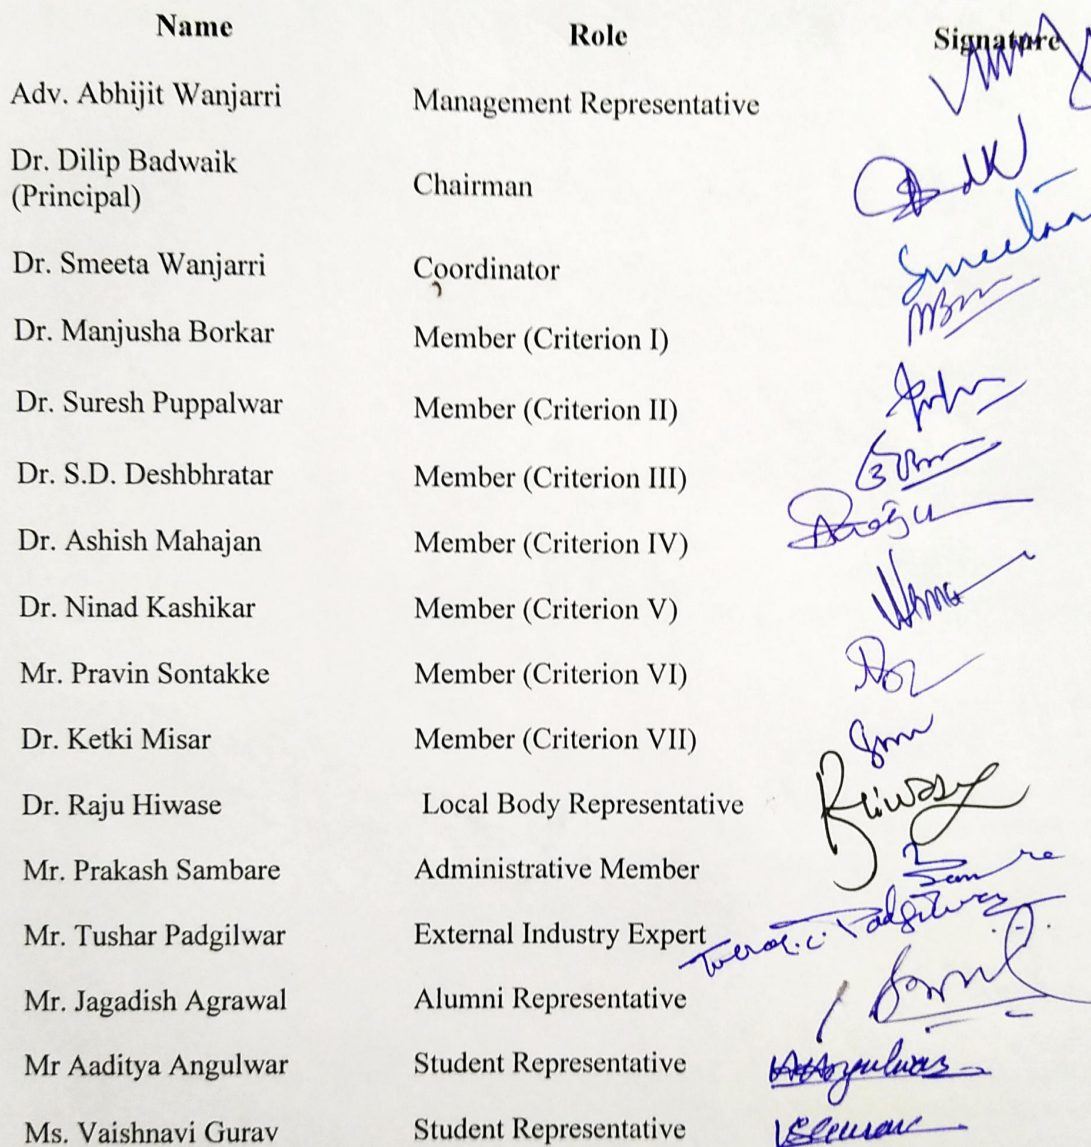 Name Role Signature
Adv. Abhijit Wanjarri Management Representative
Dr. Dilip Badwaik
(Principal) Chairman
Dr. Smeeta Wanjarri Coordinator Smeeta
Dr. Manjusha Borkar Member (Criterion I)
Dr. Suresh Puppalwar Member (Criterion II)
Dr. S.D. Deshbhratar Member (Criterion III)
Dr. Ashish Mahajan Member (Criterion IV)
Dr. Ninad Kashikar Member (Criterion V)
Mr. Pravin Sontakke Member (Criterion VI)
Dr. Ketki Misar Member (Criterion VII)
Dr. Raju Hiwase Local Body Representative
Mr. Prakash Sambare Administrative Member
Mr. Tushar Padgilwar External Industry Expert Padgilwar
Mr. Jagadish Agrawal Alumni Representative
Mr Aaditya Angulwar Student Representative
Ms. Vaishnavi Gurav Student Representative